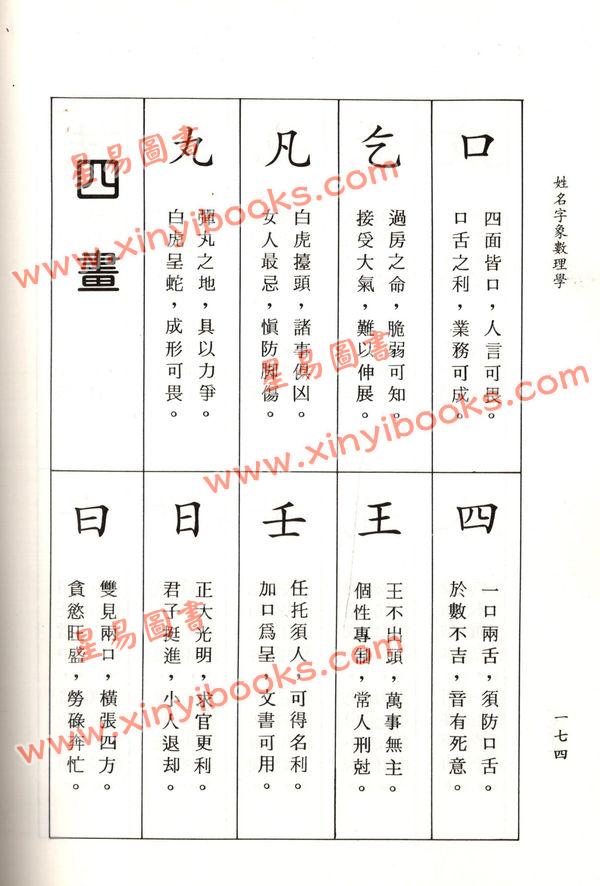 姓名字象數理學
口
四面皆口，人言可畏。
口舌之利，業務可成。
乞
過房之命，脆弱可知。
接受大氣，難以伸展。
凡
白虎擡頭，諸事俱凶。
女人最忌，愼防脚傷。
丸
彈丸之地，具以力爭。
白虎呈蛇，成形可畏。
四畫
四
一口兩舌，須防口舌。
於數不吉，音有死意。
王
王不出頭，萬事無主。
個性專制，常人刑尅。
壬
任托須人，可得名利。
加口爲呈，文書可用。
日
正大光明，求官更利。
君子挺進，小人退却。
曰
雙見兩口，橫張四方。
貪慾旺盛，勞碌奔忙。
一七四
星易圖書
www.xinyibooks.com
星易圖書
www.xinyibooks.com
星易圖書
www.xinyibooks.com